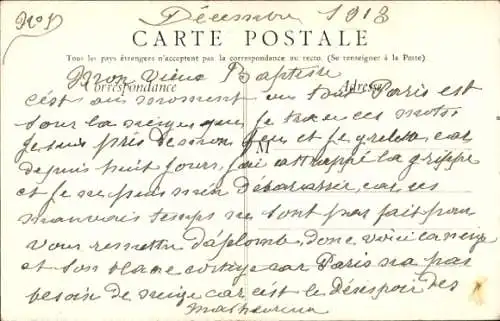 No 1
Décembre 1913
CARTE POSTALE
Tous les pays étrangers n'acceptent pas la correspondance au recto. (Se renseigner à la Poste)
Mon vieux Baptiste
Correspondance
Adresse
M
c'est au moment ou tout Paris est
sous la neige que je trace ces mots
je suis près de mon feu et je grelotte car
depuis huit jours j'ai attrappé la grippe
et je ne puis m'en débarrasser, car ces
mauvais temps ne sont pas fait pour
vous remettre d'aplomb, donc voici la neige
et son blanc cortège car Paris n'a pas
besoin de neige car c'est le désespoir des
malheureux